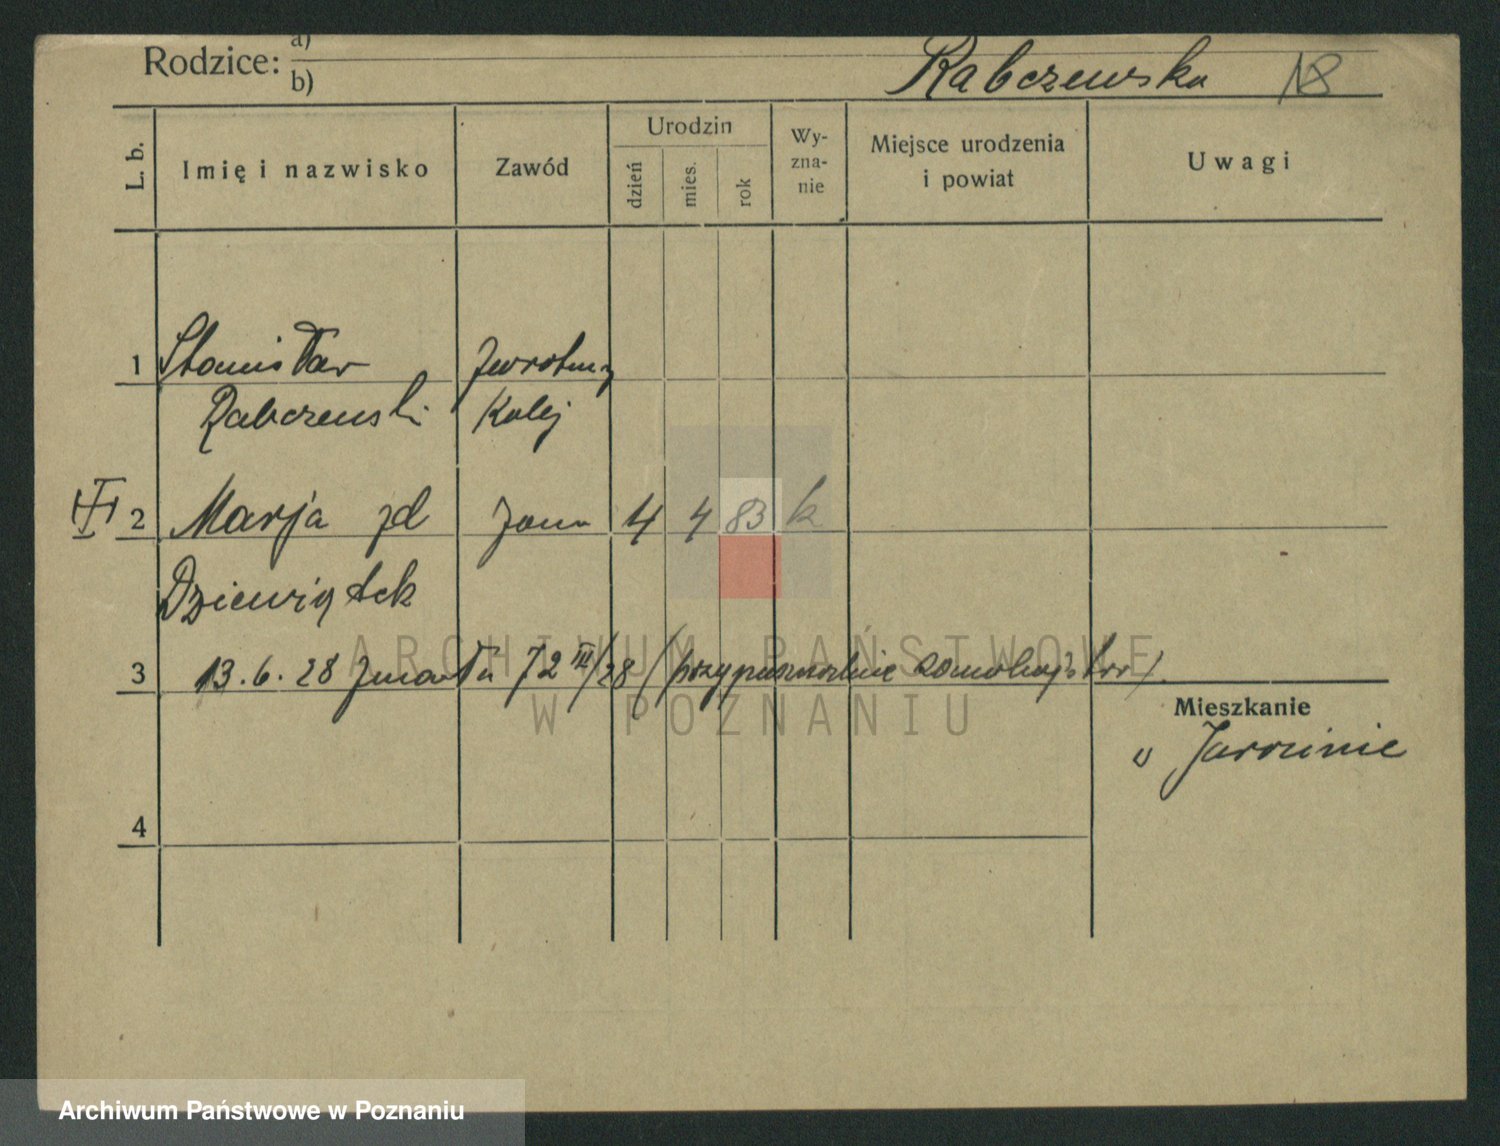 Rodzice: a)
b)
Rabczewska 18
L. b.
Imię i nazwisko
Zawód
Urodzin
dzień
mies.
rok
Wy-
zna-
nie
Miejsce urodzenia
i powiat
Uwagi
1 Stanisław Zwrotniczy
Rabczewski Kolej
2 Marja zd Żona 4 4 83 k
Dziewiątek
3 13.6.28 zmarła 72 III/28 (przypuszczalnie
Mieszkanie
w Jarocinie
4
ARCHIWUM PAŃSTWOWE
W POZNANIU
Archiwum Państwowe w Poznaniu